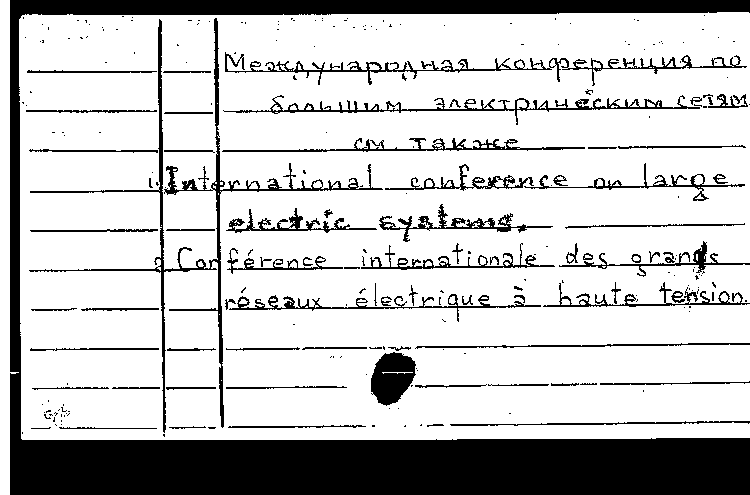 Международная конференция по
большим электрическим сетям
см. также
1. International conference on large
electric systems.
2. Conférence internationale des grands
réseaux électrique à haute tension